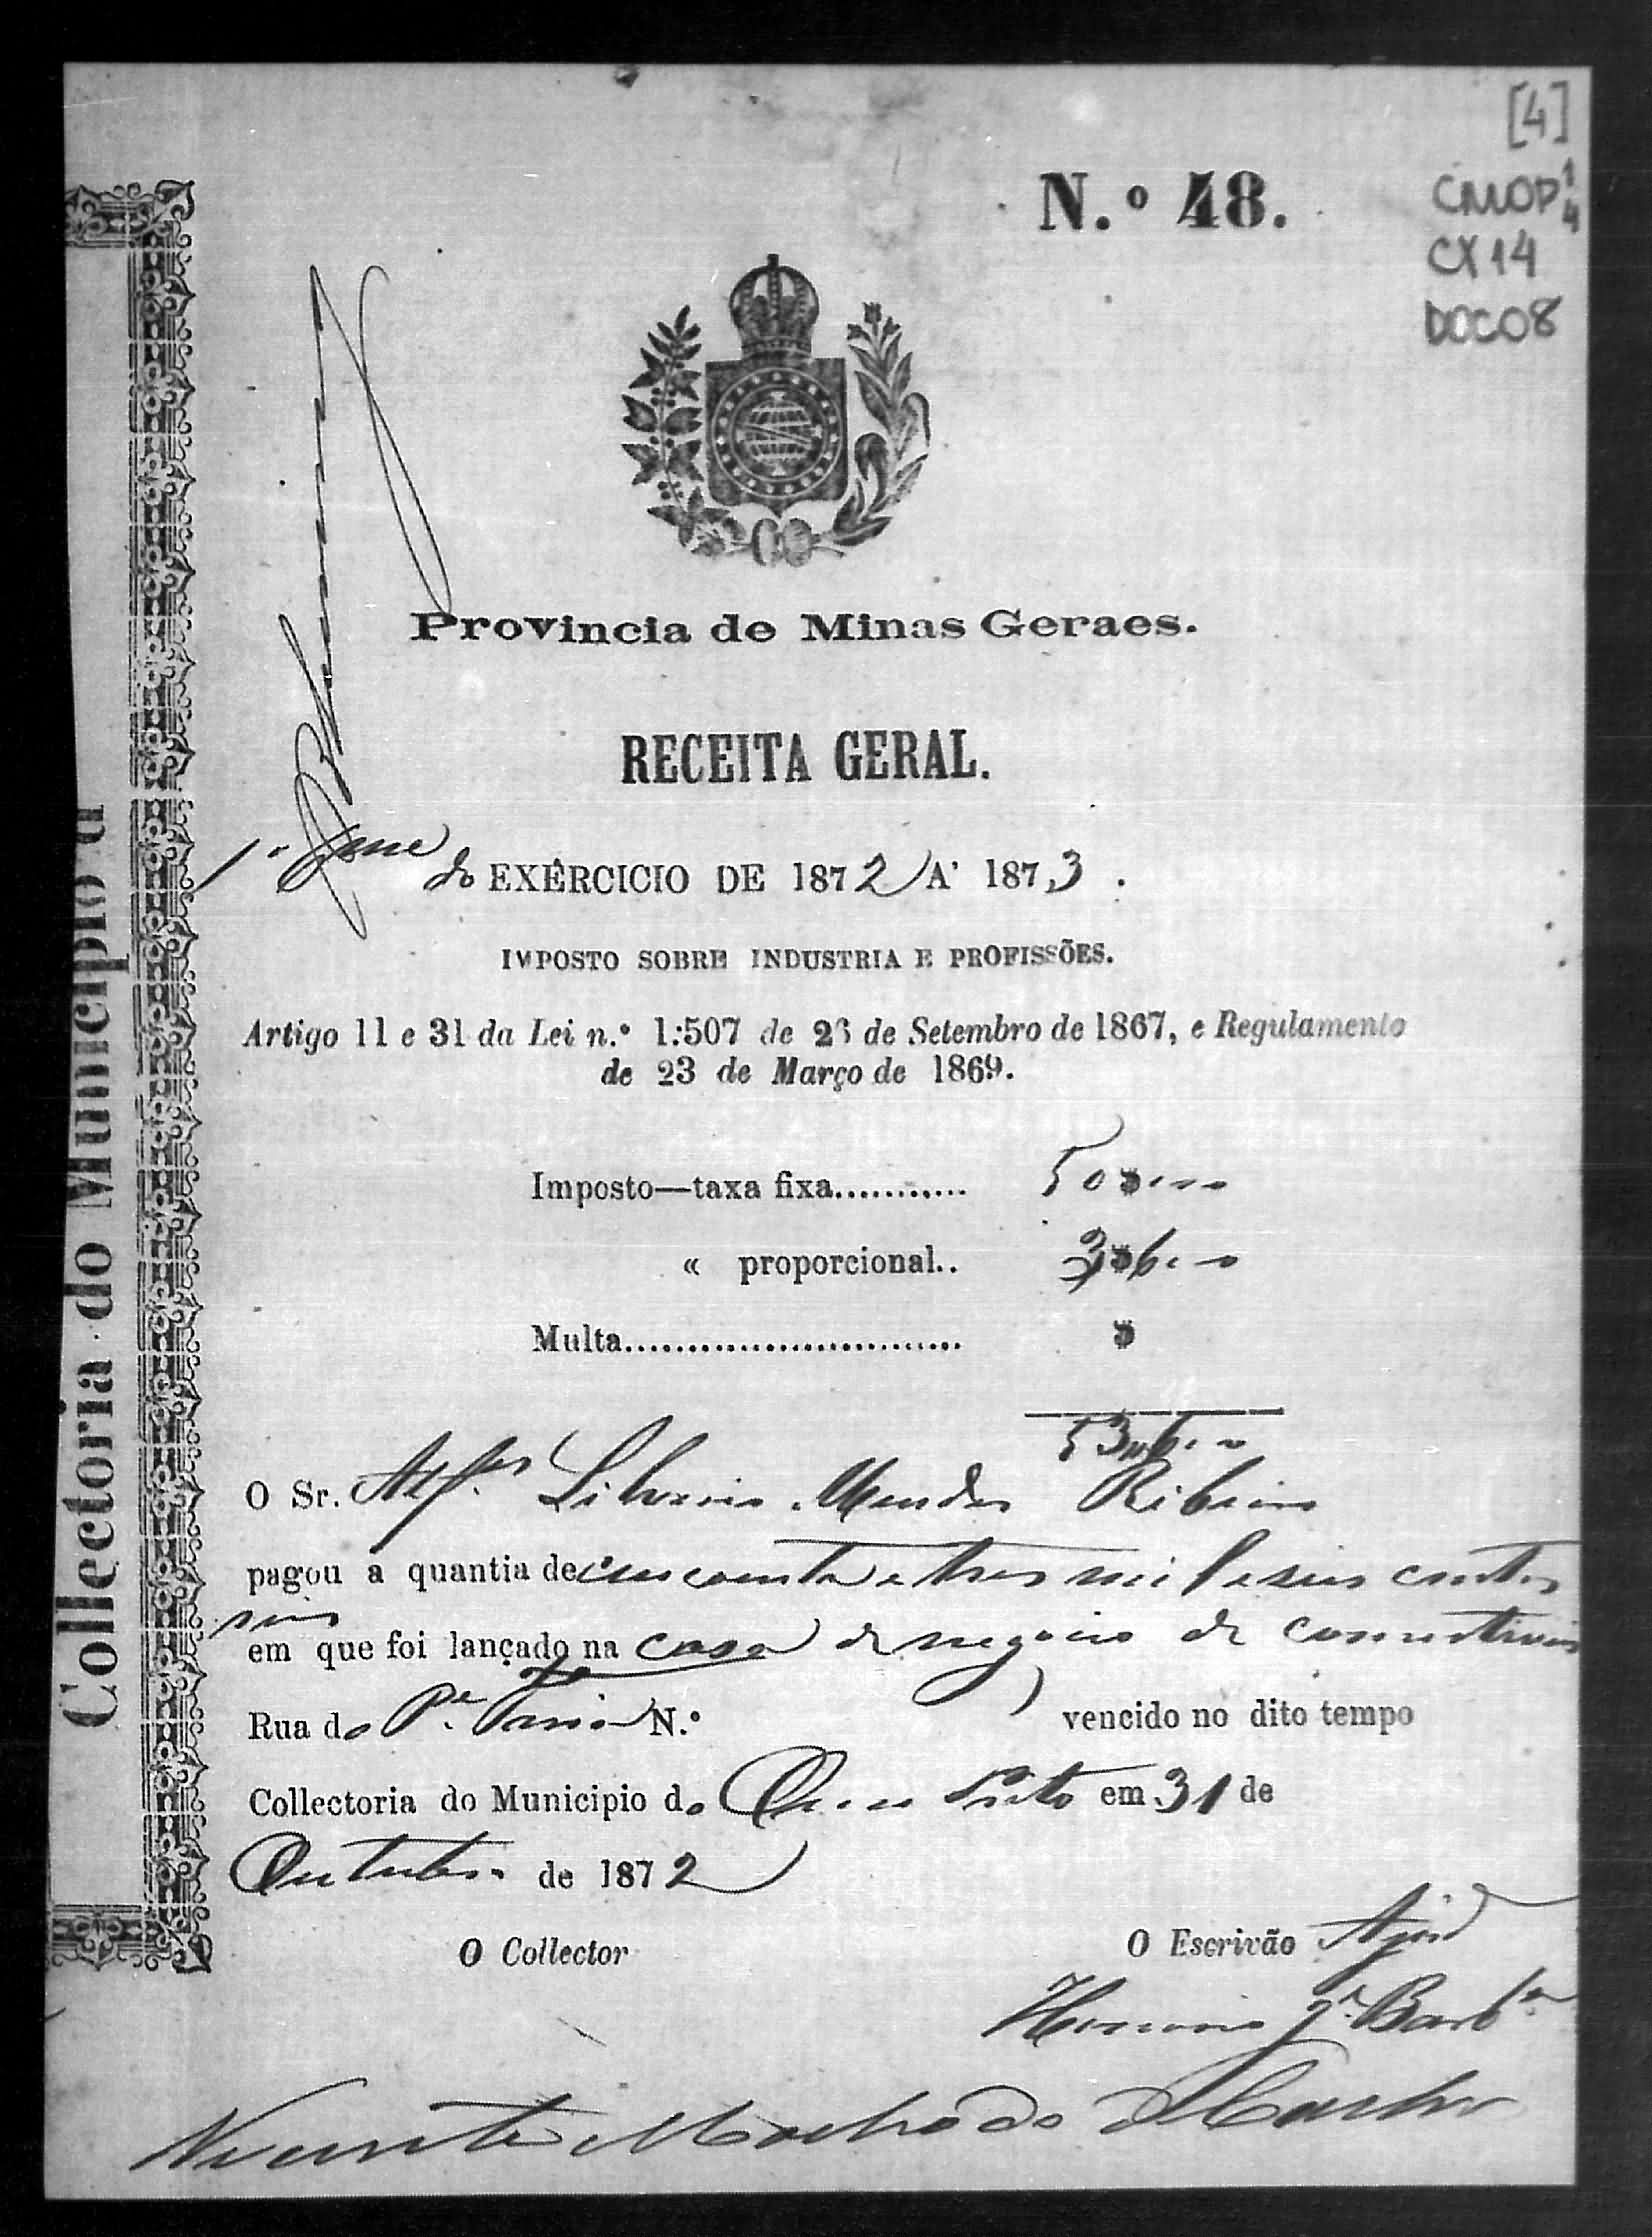 [4]
CMOP 1/4
CX 14
DOC 08
N.º 48.
Provincia de Minas Geraes.
RECEITA GERAL.
1º do EXERCICIO DE 1872 A' 1873.
IMPOSTO SOBRE INDUSTRIA E PROFISSÕES.
Artigo 11 e 31 da Lei n.º 1:507 de 26 de Setembro de 1867, e Regulamento
de 23 de Março de 1869.
Imposto—taxa fixa........... 50$000
« proporcional.. 3$600
Multa........................... $
53$600
O Sr. Alfes Silverio Mendes Ribeiro
pagou a quantia de cincoenta e tres mil e seis centos
reis
em que foi lançado na casa de negocio de comestiveis
Rua do Pe Faria N.º vencido no dito tempo
Collectoria do Municipio do Ouro Preto em 31 de
Outubro de 1872
O Collector
O Escrivão Ajud
Honorio Je Barba
Vicente Machado de Castro
Collectoria do Municipio d